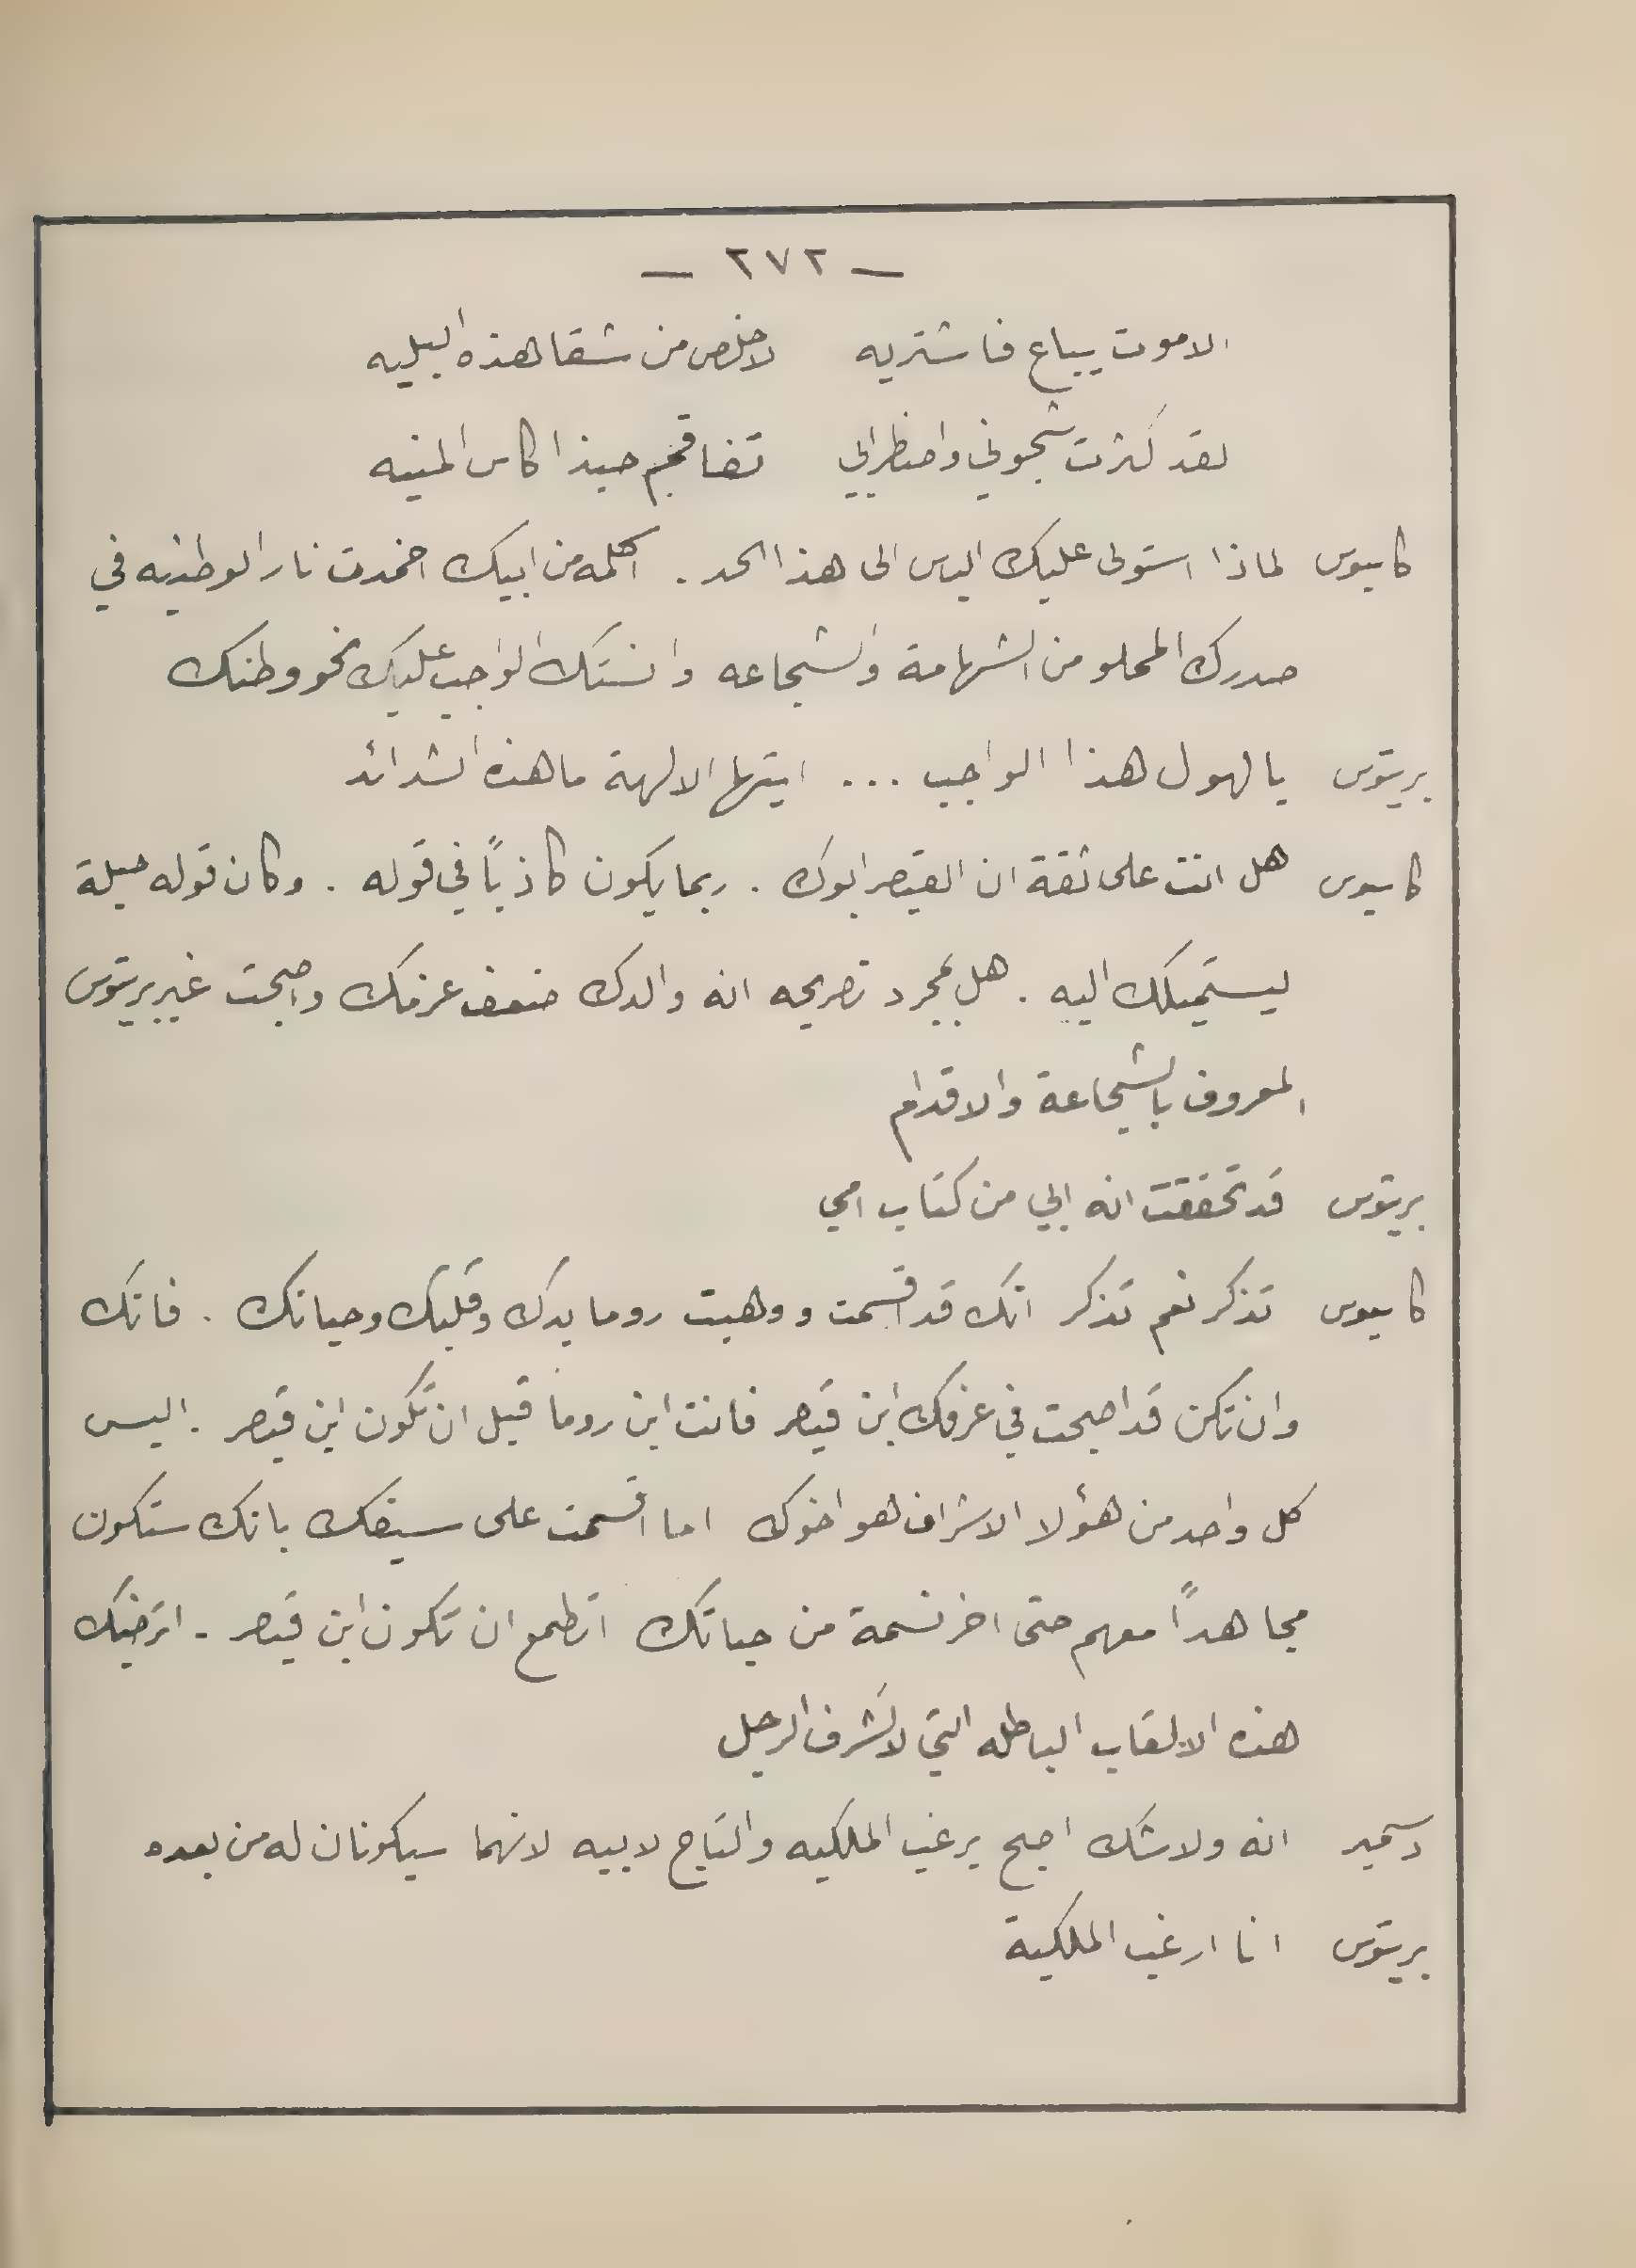 — ٢٧٢ —
الا موت يباع فاشتريه لاخلص من شقا هذه البليه
لقد كثرت شجوني واضطرابي تفاقم حبذا كاس المنيه
كاسيوس لماذا استولى عليك الياس الى هذا الحد . اكلمه من ابيك اخمدت نار الوطنيه في
صدرك المملو من الشهامة والشجاعه وانستك الواجب عليك نحو وطنك
بريتوس يا لهول هذا الواجب ... ايتها الالهة ما هذه الشدائد
كاسيوس هل انت على ثقة ان القيصر ابوك . ربما يكون كاذباً في قوله . وكان قوله حيلة
ليستميلك اليه . هل بمجرد تصريحه انه والدك ضعف عزمك واصبحت غير بريتوس
المعروف بالشجاعة والاقدام
بريتوس قد تحققت انه ابي من كتاب امي
كاسيوس تذكر نعم تذكر انك قد اقسمت ووهبت روما يدك وقلبك وحياتك . فانك
وان تكن قد اصبحت في عرفك ابن قيصر فانت ابن روما قبل ان تكون ابن قيصر . اليس
كل واحد من هؤلا الاشراف هو اخوك اما اقسمت على سيفك بانك ستكون
مجاهداً معهم حتى اخر نسمة من حياتك اتطمع ان تكون ابن قيصر - اترضيك
هذه الالقاب الباطله التي لا تشرف الرجل
دسمير انه ولا شك اصبح يرغب الملكيه والتاج لابيه لانهما سيكونان له من بعده
بريتوس انا ارغب الملكية